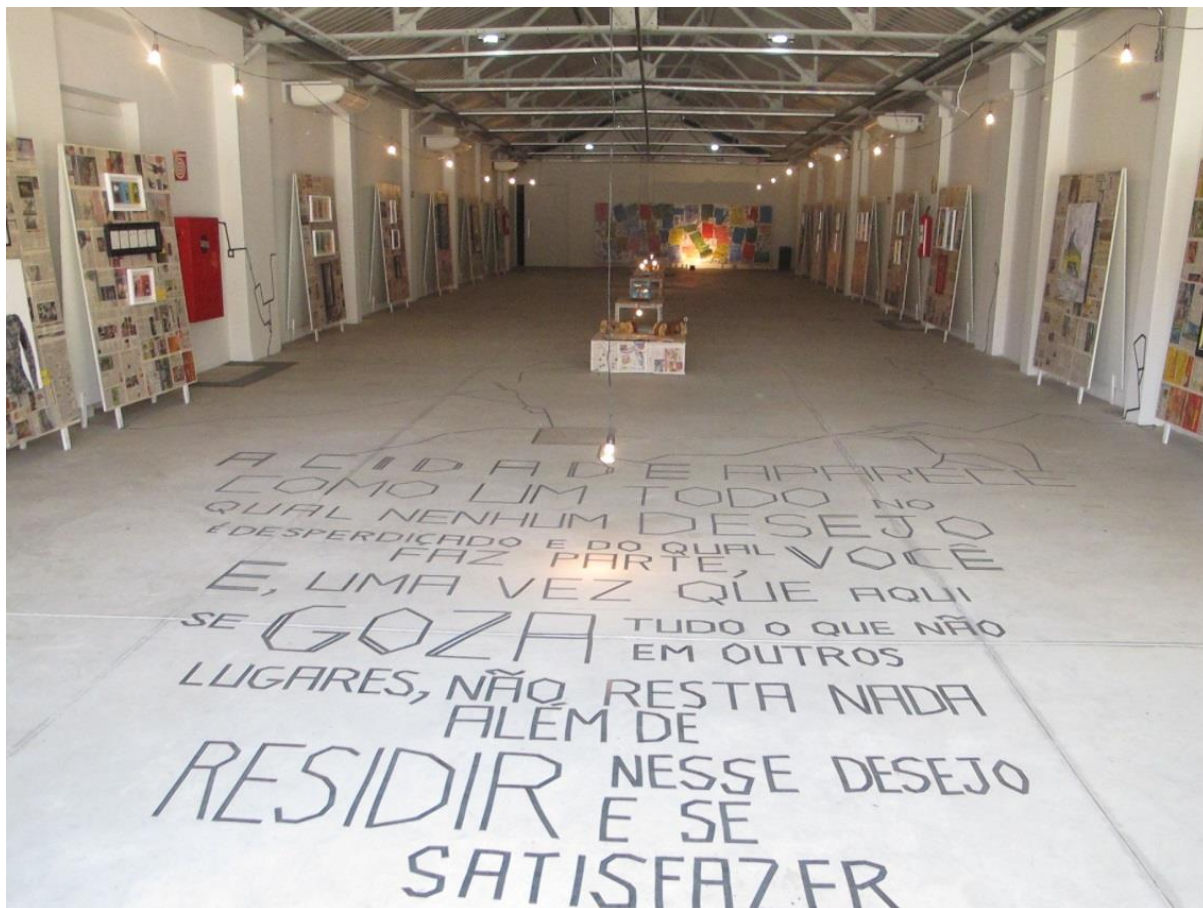 A CIDADE APARECE
COMO UM TODO NO
QUAL NENHUM DESEJO
É DESPERDIÇADO E DO QUAL
FAZ PARTE, VOCÊ
E, UMA VEZ QUE AQUI
SE GOZA TUDO O QUE NÃO
EM OUTROS
LUGARES, NÃO RESTA NADA
ALÉM DE
RESIDIR NESSE DESEJO
E SE
SATISFAZER